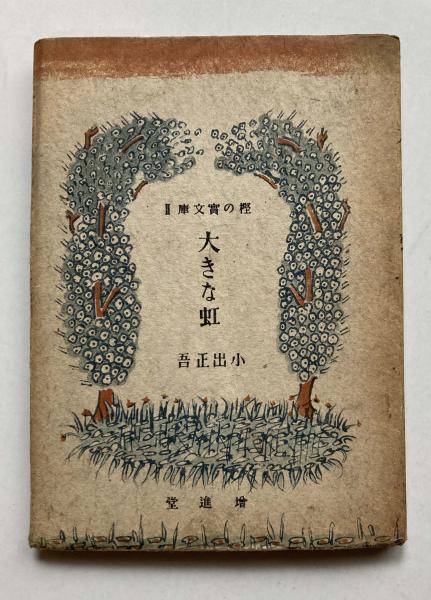 樫の實文庫Ⅱ
大きな虹
小出正吾
增進堂